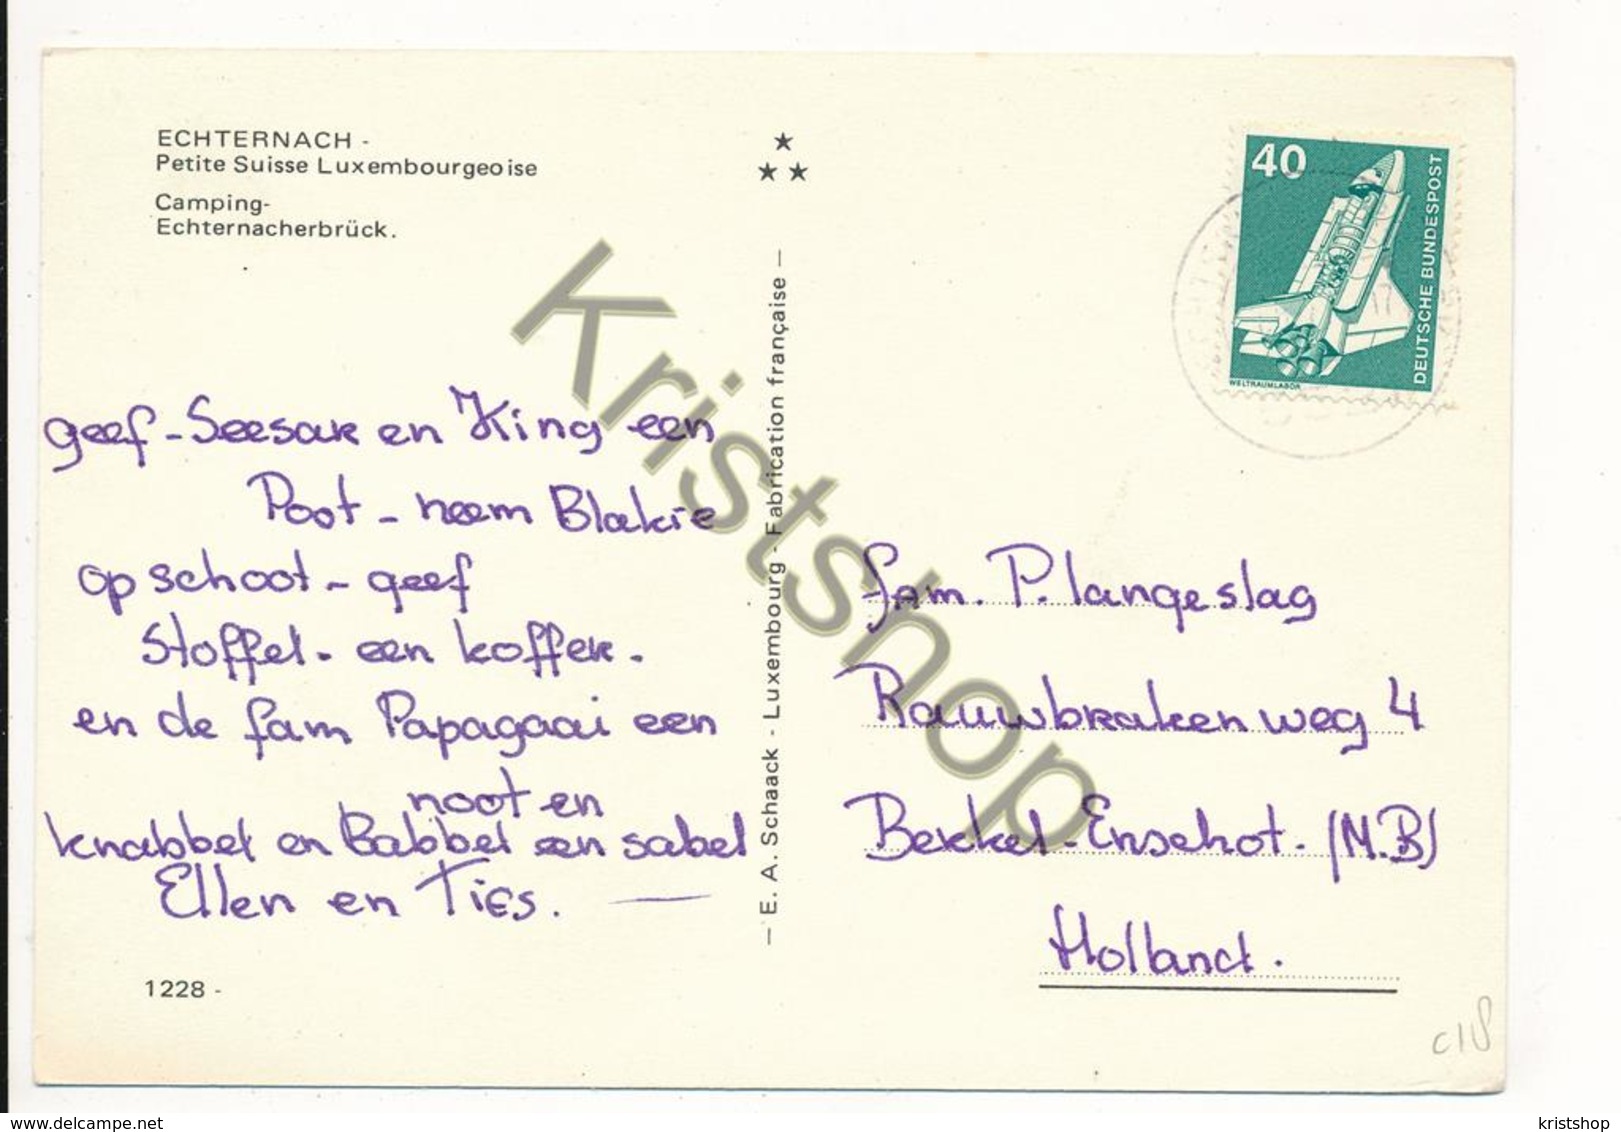 ECHTERNACH -
Petite Suisse Luxembourgeoise
Camping-
Echternacherbrück.
geef - Seesar en King een
Poot - neem Blakie
op schoot - geef
Stoffel - een koffer.
en de fam Papagaai een
noot en
knabbel en Babbel een sabel
Ellen en Ties.
1228 -
— E. A. Schaack - Luxembourg - Fabrication française —
40
DEUTSCHE BUNDESPOST
WELTRAUMLABOR
fam. P. langeslag
Rauwbraken weg 4
Berkel-Enschot. (N.B)
Holland.
Kristshop
www.delcampe.net
kristshop